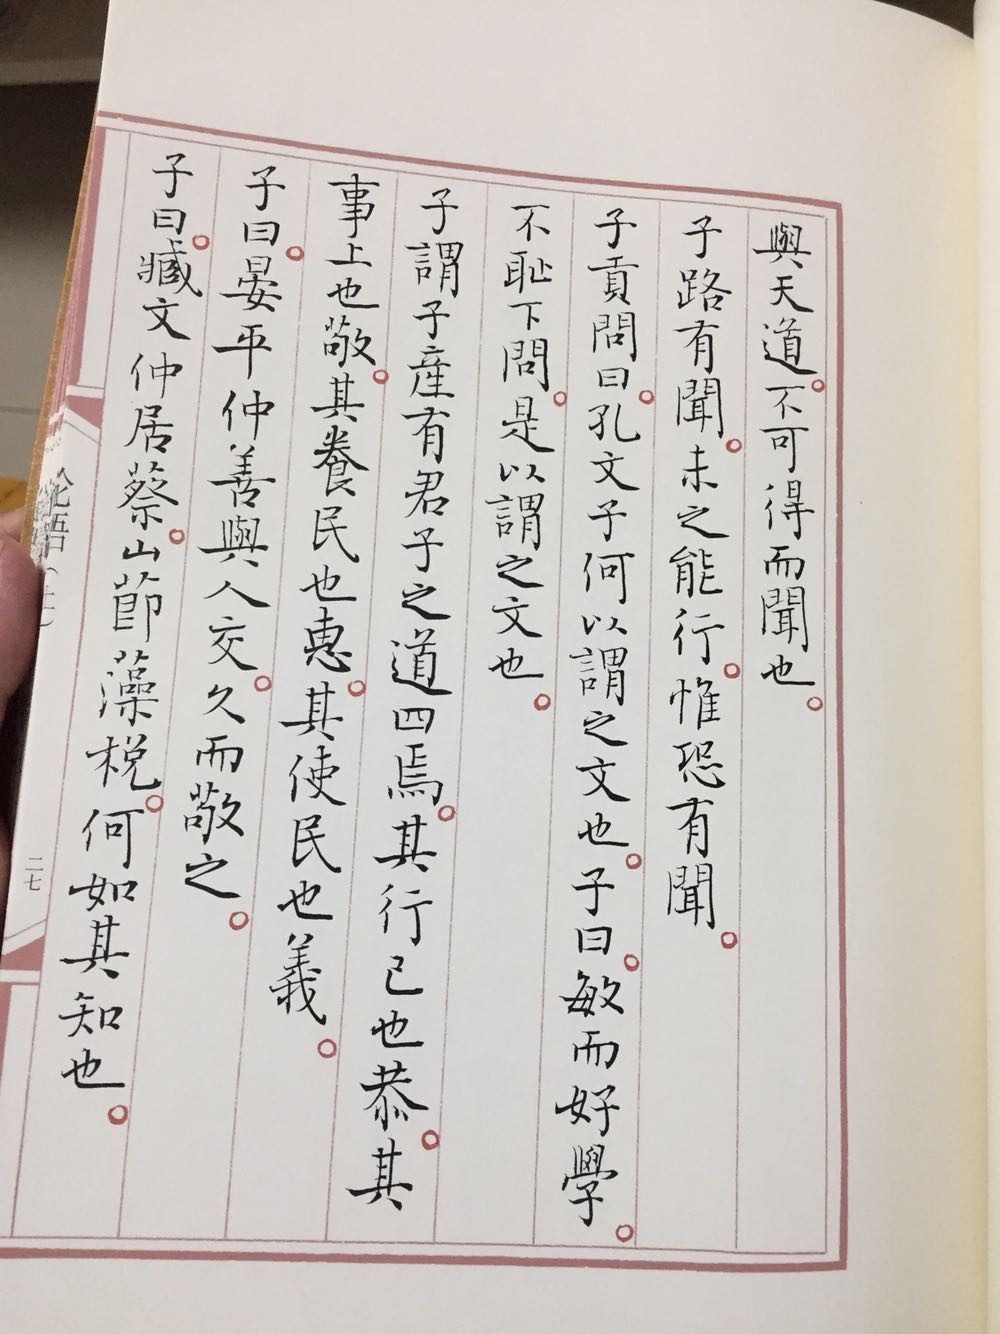 與天道。不可得而聞也。
子路有聞。未之能行。惟恐有聞。
子貢問曰。孔文子何以謂之文也。子曰。敏而好學。
不恥下問。是以謂之文也。
子謂子產有君子之道四焉。其行己也恭。其
事上也敬。其養民也惠。其使民也義。
子曰。晏平仲善與人交。久而敬之。
子曰。臧文仲居蔡。山節藻梲。何如其知也。
論語（上）
二七